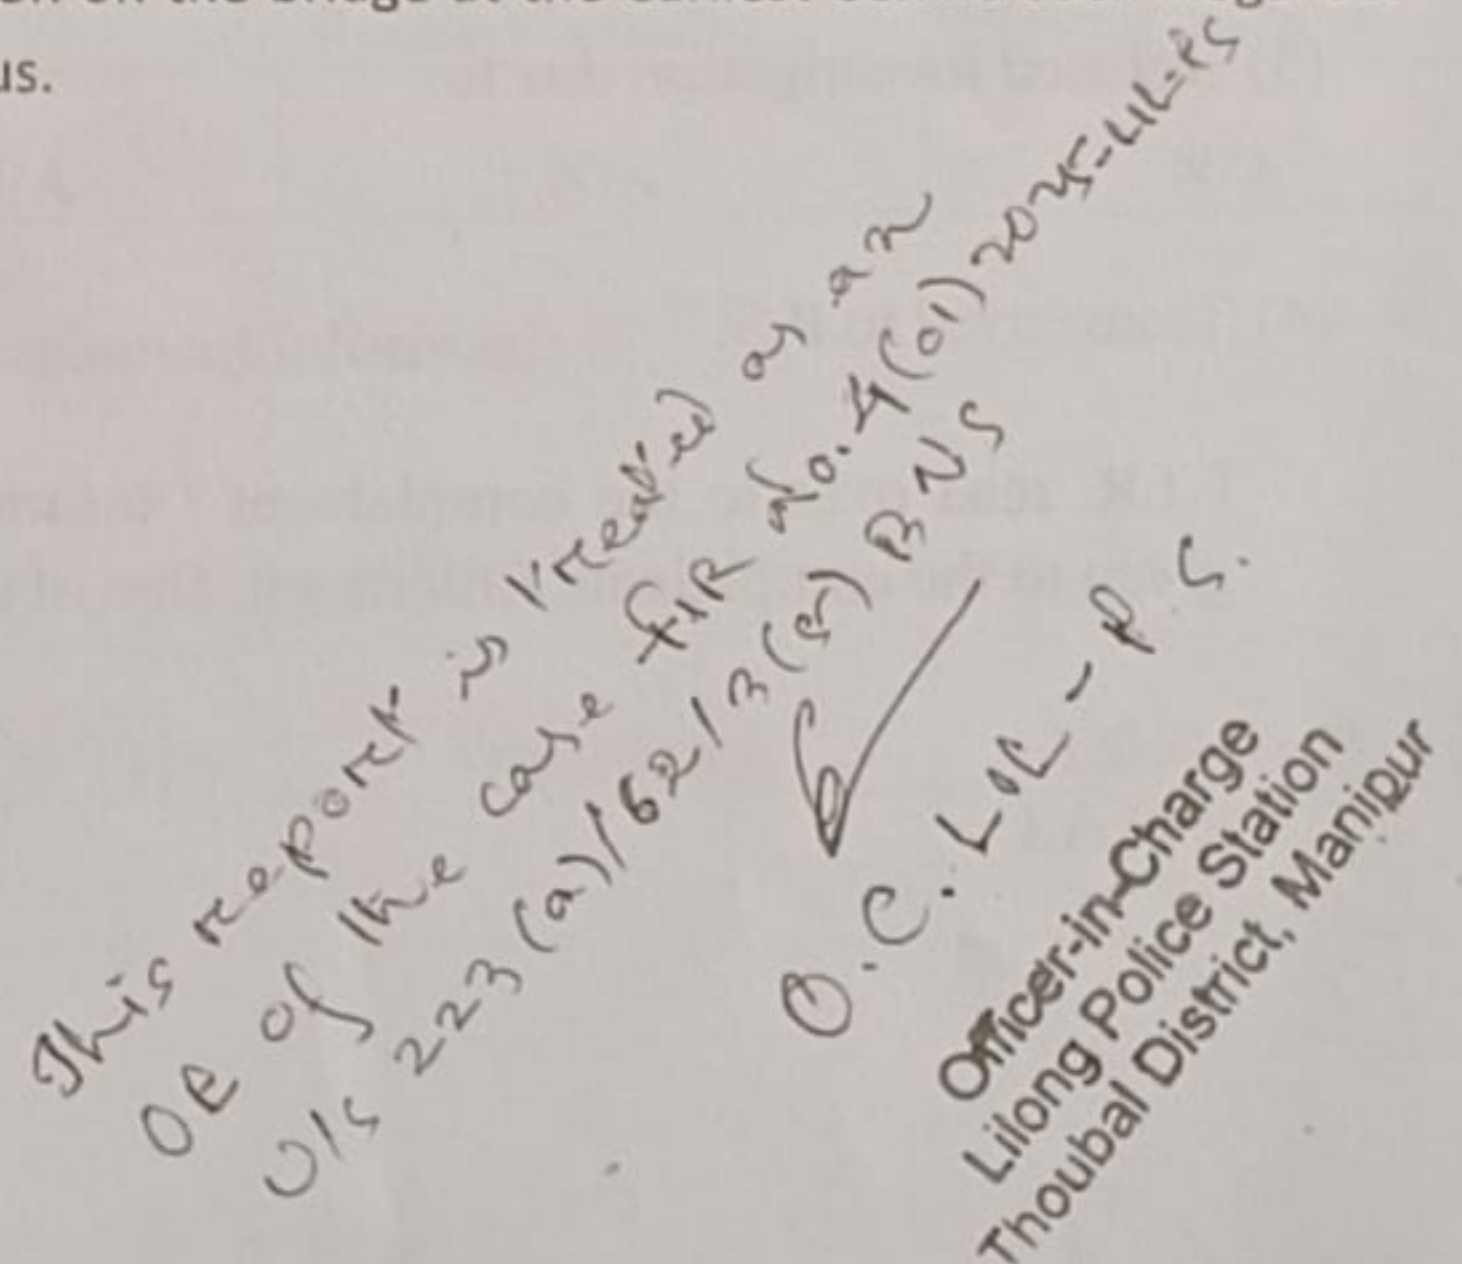 us.
This report is treated as an
OE of the case FIR No. 4(01)2025-LIL-PS
U/s 223(a)/62/3(5) BNS
O.C. LIL-P.S.
Officer-in-Charge
Lilong Police Station
Thoubal District, Manipur